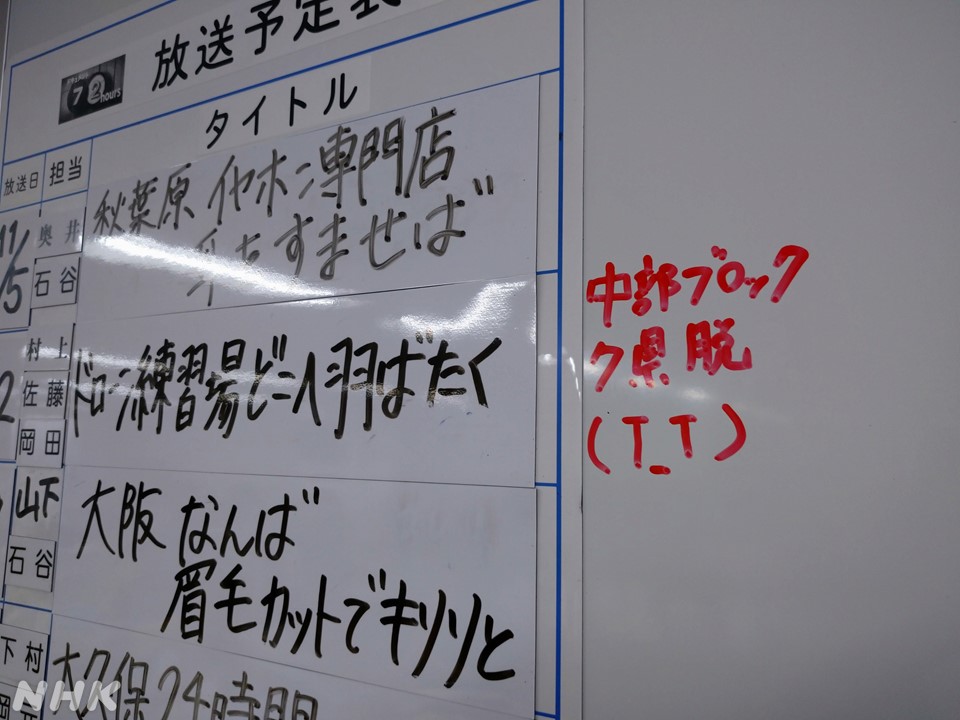 放送予定表
7 2 hours
タイトル
放送日 担当
11/5
奥井
石谷
秋葉原 イヤホン専門店
耳をすませば
村上
佐藤
岡田
ドローン練習場ビュ～ンと羽ばたく
山下
石谷
大阪 なんば
眉毛カットでキリリと
下村
大久保24時間
中部ブロック
ク県 脱
(T_T)
NHK